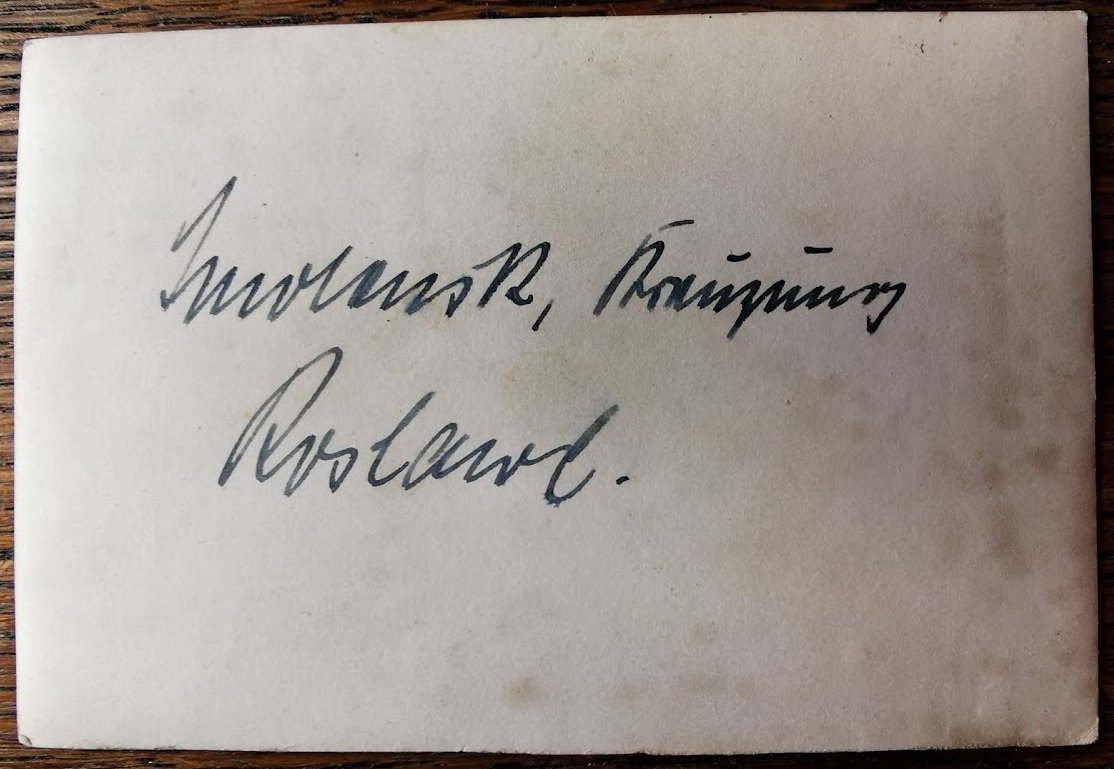 Smolensk, Kreuzung
Roslawl.